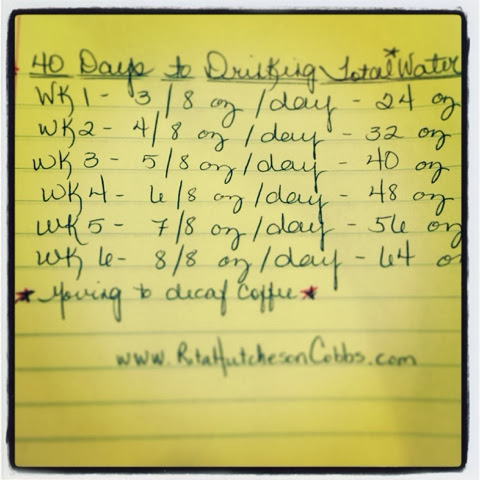 40 Days to Drinking Total* Water
WK 1 - 3/8 oz/day - 24 oz
WK 2 - 4/8 oz/day - 32 oz
WK 3 - 5/8 oz/day - 40 oz
WK 4 - 6/8 oz/day - 48 oz
WK 5 - 7/8 oz/day - 56 oz
WK 6 - 8/8 oz/day - 64 oz
* Moving to decaf Coffee *
www.RitaHutchesonCobbs.com